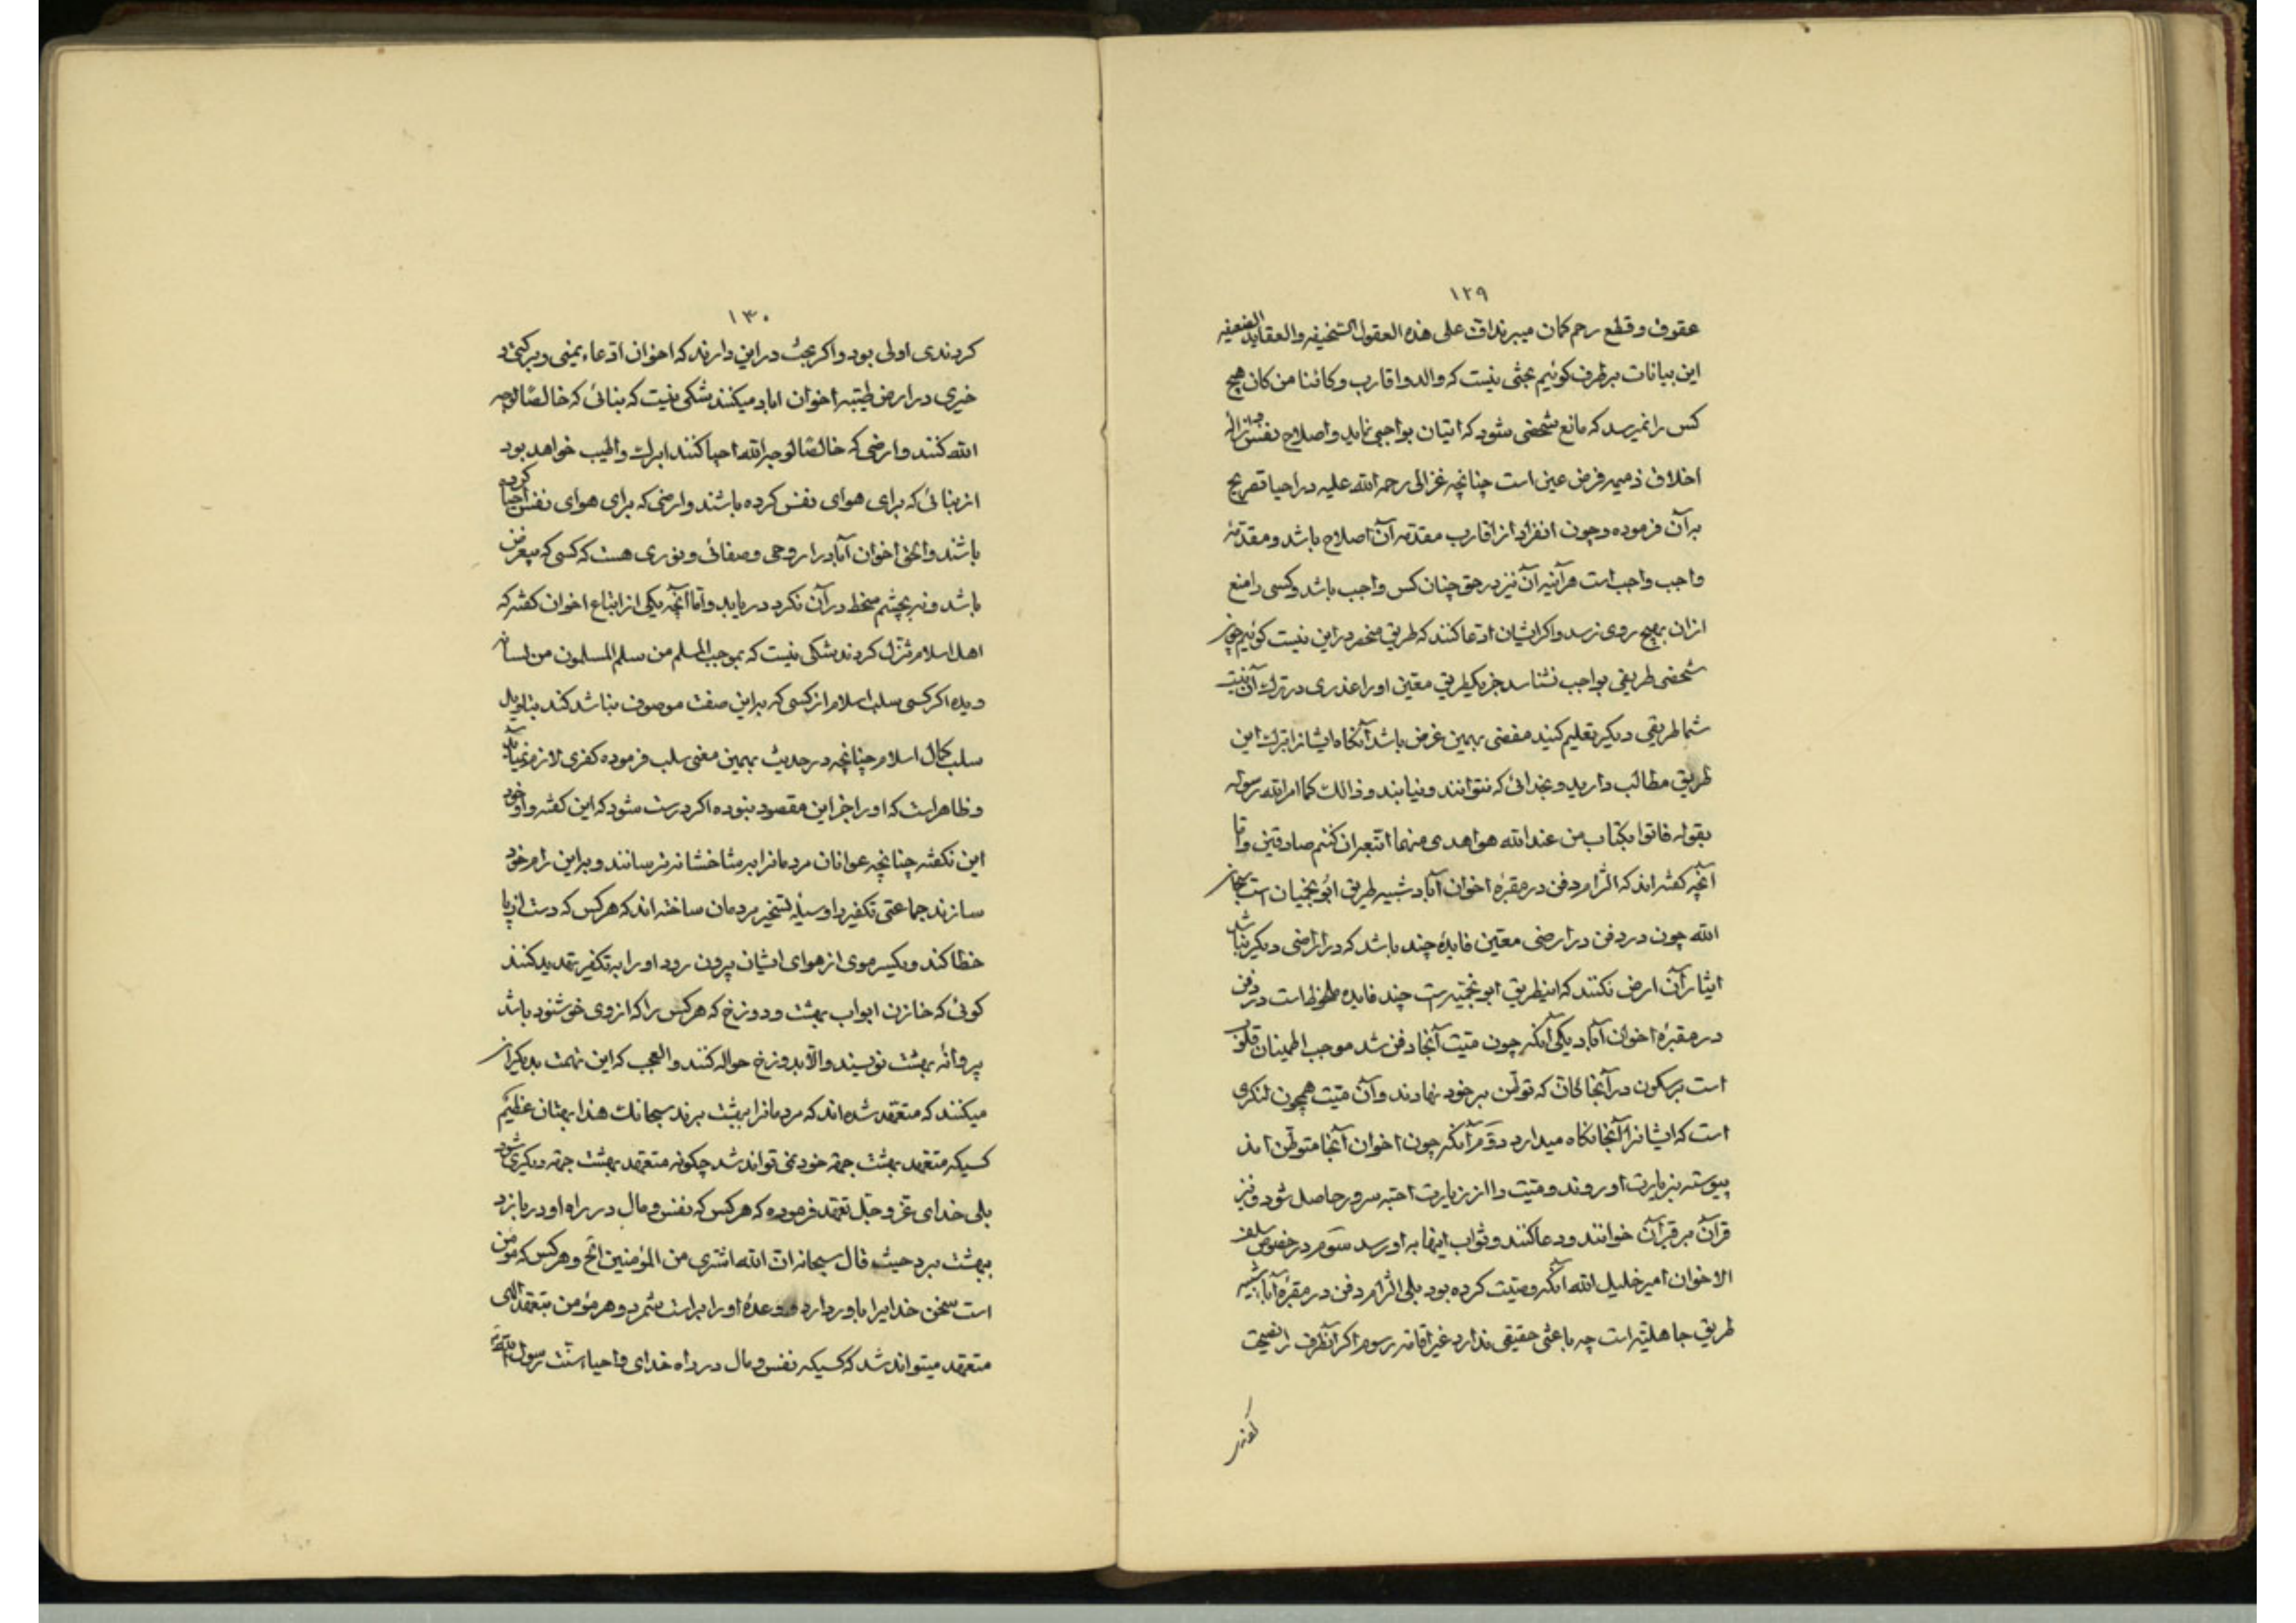 ١٢٩
عقوق و قطع رحم کمان میبرند اف علی هذه العقول السخیفه والعقاید الضعیفه
این بیانات برطرف کوئیم بحثی نیست که والد و اقارب و کائنا من کان هیچ
کس را نمیرسد که مانع شخصی شود که اتیان بواجبی نماید و اصلاح نفس و ازاله
اخلاق ذمیمه فرض عین است چنانچه غزالی رحمه الله علیه در احیا تصریح
بر آن فرموده و چون انفراد از اقارب مقدمه آن اصلاح باشد و مقدمهٔ
واجب واجب است هر آنیه آن نیز در حق چنان کس واجب باشد و کسی را منع
ازان بهیچ روی نرسد و اکر ایشان ادعا کنند که طریق منحصر در این نیست کوئیم چون
شخصی طریقی بواجب نشناسد جز یکطریق معین او را عذری در ترک آن نیست
شما طریقی دیکر تعلیم کنید مفضی بهمین غرض باشد آنکاه ایشانرا بترک این
طریق مطالب دارید و بخدائی که نتوانند و نیابند و ذالک کما امر الله رسوله
بقوله فاتوا بکتاب من عند الله هو اهدی منهما اتبعه ان کنتم صادقین و اما
آنچه کفته اند که التزام دفن در مقبرهٔ اخوان آباد شبیه طریق ابو نجیبان است سبحان
الله چون در دفن در ارضی معین فایدهٔ چند باشد که در اراضی دیکر نباشد
ایثار آن ارض نکنند که اینطریق ابو نجیبه است چند فایده ملحوظ است در دفن
در مقبرهٔ اخوان آباد یکی آنکه چون میت آنجا دفن شد موجب اطمینان قلوب
است بر سکون در آنجا کاق که توطن بر خود نهادند و آن میت همچون لنکری
است که ایشانرا آنجا نکاه میدارد دوم آنکه چون اخوان آنجا متوطن اند
پیوسته بزیارت او روند و میت را از زیارت احبه سرور حاصل شود و نیز
قرآن بر قرآن خوانند و دعا کنند و ثواب اینها به او رسد سوم در خصوص سلف
الاخوان امیر خلیل الله آنکه وصیت کرده بود بلی التزام دفن در مقبرهٔ آبا شبیه
طریق جاهلیه است چه باعثی حقیقی ندارد غیر اقامه رسوم اکر آنطرف را نصیحت
١٣٠
کردندی اولی بود و اکر بحث در این دارند که اخوان ادعاء یمنی و برکتی و
خیری در ارض طیبه اخوان اباد میکنند شکی نیست که بنائی که خالصا لوجه
الله کنند و ارضی که خالصا لوجه الله احیا کنند ابرک و اطیب خواهد بود
از بنائی که برای هوای نفس کرده باشند و ارضی که برای هوای نفس احیا کرده
باشند و الحق اخوان آباد را روحی و صفائی و نوری هست که کسی که بیغرض
باشد و نه بچشم سخط در آن نکرد دریابد و اما آنچه یکی از اتباع اخوان کفته که
اهل اسلام تنزل کردند شکی نیست که بموجب المسلم من سلم المسلمون من لسانه
و یده اکر کسی سلب اسلام از کسی که براین صفت موصوف نباشد کند بتاویل
سلب کمال اسلام چنانچه در حدیث بهمین معنی سلب فرموده کفری لازم نمیاید
و ظاهر است که او را جز این مقصود نبوده اکر درست شود که این کفته و او خود
این نکفته چنانچه عوانان مردمانرا بر مثاخشانه ترسانند و براین رام خود
سازند جماعتی تکفیر را وسیلهٔ تسخیر مردمان ساخته اند که هر کس که دست از پا
خطا کند و یکسر موی از هوای ایشان بیرون رود او را به تکفیر تهدید کنند
کوئی که خازن ابواب بهشت و دوزخ که هر کس را که از وی خوشنود باشد
پروانه بهشت نویسند والا بدوزخ حواله کنند والعجب که این تهمت بدیکران
میکنند که متعهد شده اند که مردمانرا ببهشت برند سبحانک هذا بهتان عظیم
کسیکه متعهد بهشت جهة خود نمی تواند شد چکونه متعهد بهشت جهة دیکری شود
بلی خدای عز و جل تعهد فرموده که هر کس که نفس و مال در راه او دربازد
ببهشت برد حیث قال سبحانه ان الله اشتری من المؤمنین الخ و هر کس که مؤمن
است سخن خدایرا باور دارد و وعدهٔ او را براست شمرد و هر مؤمن بتعهد الهی
متعهد میتواند شد که کسیکه نفس و مال در راه خدای و احیاء سنت رسول الله